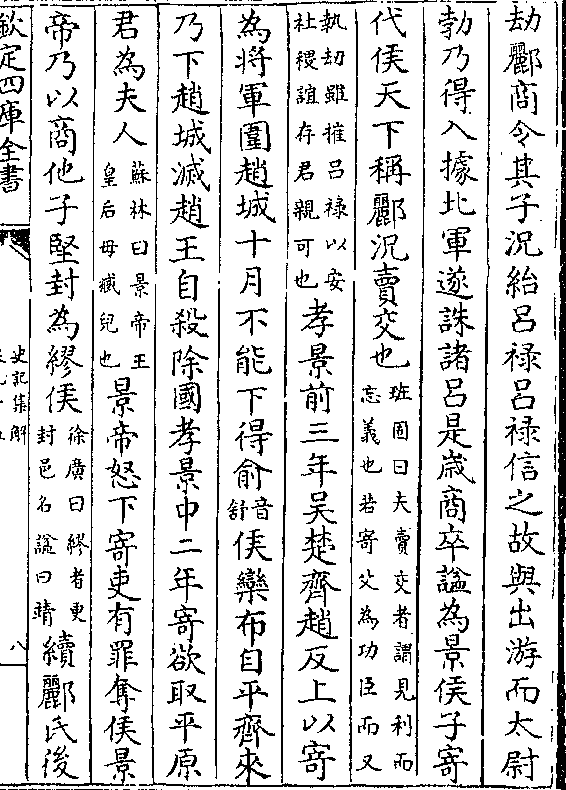 劫酈商令其子況紿呂禄呂禄信之故與出游而太尉
勃乃得入據北軍遂誅諸呂是歳商卒諡為景侯子寄
代侯天下稱酈況賣交也班固曰夫賣交者謂見利而忘義也若寄父為功臣而又
執劫雖摧呂禄以安社稷誼存君親可也孝景前三年吳楚齊趙反上以寄
為将軍圍趙城十月不能下得俞音舒侯欒布自平齊來
乃下趙城滅趙王自殺除國孝景中二年寄欲取平原
君為夫人蘇林曰景帝王皇后母臧兒也景帝怒下寄吏有罪奪侯景
帝乃以商他子堅封為繆侯徐廣曰繆者更封邑名諡曰靖續酈氏後
欽定四庫全書
史記集解
八